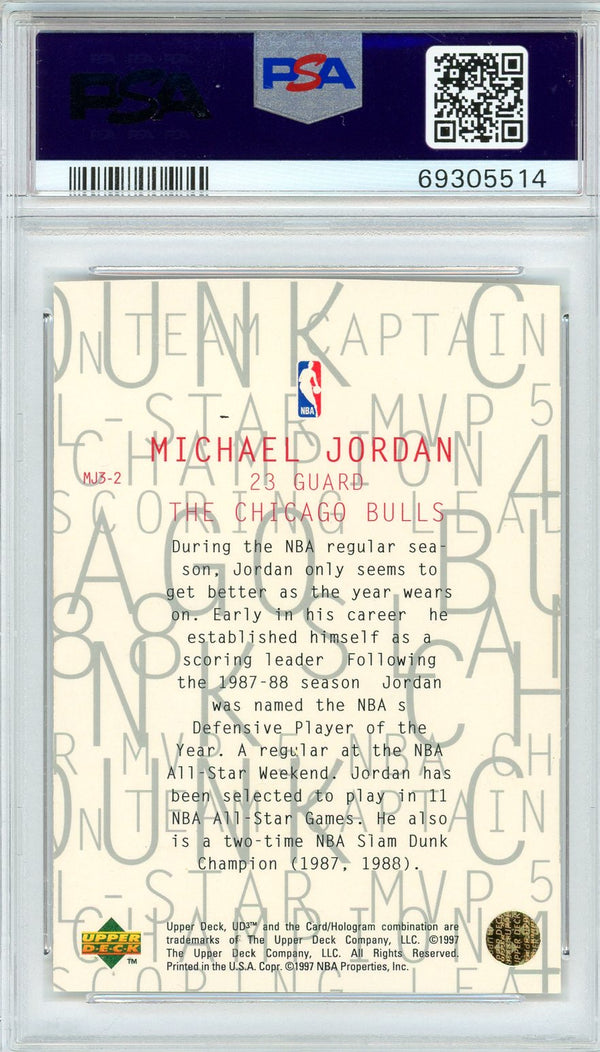 PSA
PSA
69305514
DUNK C
ON TEAM CAPTAIN
NBA
L-STAR MVP 5
MICHAEL JORDAN
CHAMPION 4
MJ3-2
23 GUARD
THE CHICAGO BULLS
SCORING LEAD
During the NBA regular sea-
son, Jordan only seems to
get better as the year wears
on. Early in his career he
established himself as a
scoring leader Following
the 1987-88 season Jordan
was named the NBA s
Defensive Player of the
Year. A regular at the NBA
All-Star Weekend. Jordan has
been selected to play in 11
NBA All-Star Games. He also
is a two-time NBA Slam Dunk
Champion (1987, 1988).
AGO BUL
R MVP 5 NBA CH
DUNK C
ON TEAM CAPTAIN
L-STAR MVP 5
CHAMPION 4
UPPER
DECK
TM
Upper Deck, UD3™ and the Card/Hologram combination are
trademarks of The Upper Deck Company, LLC. ©1997
The Upper Deck Company, LLC. All Rights Reserved.
Printed in the U.S.A. Copr. ©1997 NBA Properties, Inc.